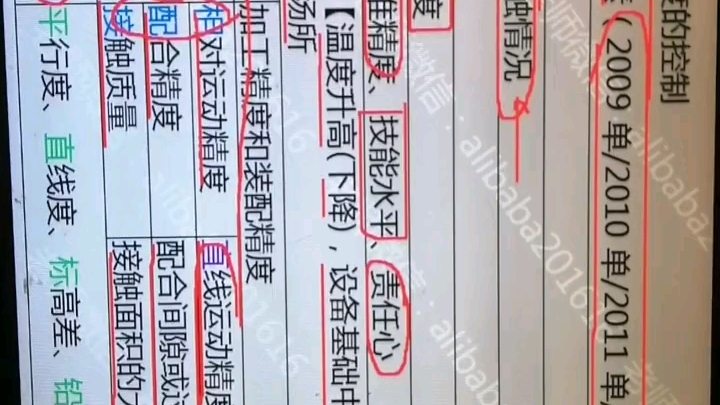 度的控制
(2009 单/2010 单/2011 单/
触情况
度
准精度、技能水平、责任心
【温度升高(下降),设备基础中
场所
加工精度和装配精度
相对运动精度 直线运动精度
配合精度 配合间隙或过
接触质量 接触面积的大
平行度、直线度、标高差、铅
微信:alibaba201616